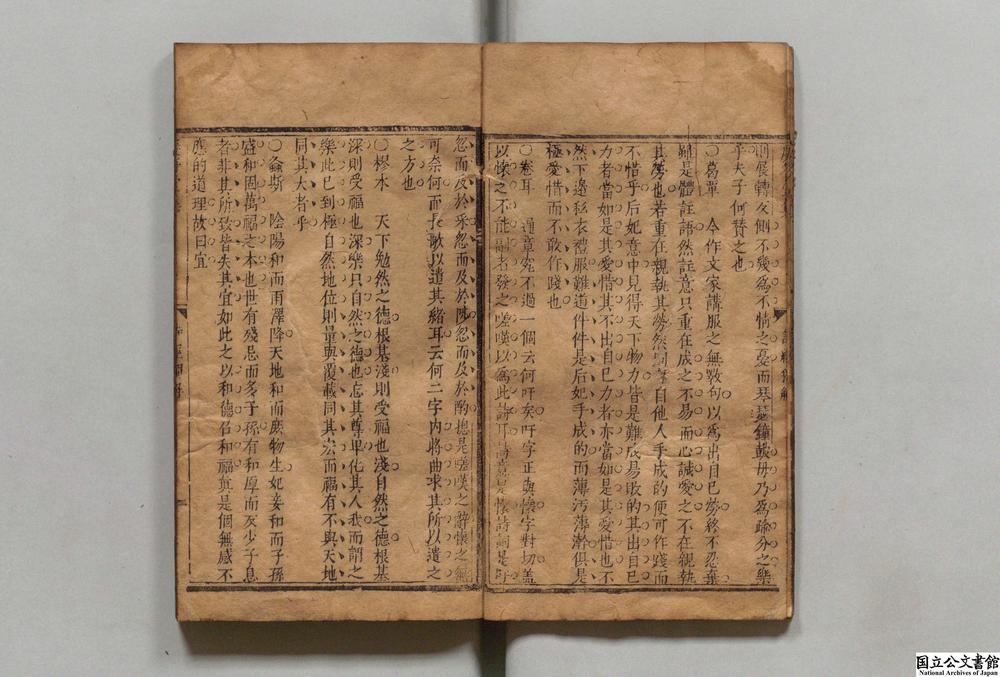 則展轉反側不幾為不情之憂而琴瑟鐘鼓毋乃為踰分之樂
乎夫子何贊之也
○葛覃　今作文家講服之無斁句以為出自已勞終不忍棄
雖是體註語然註意只重在成之不易而心誠愛之不在親執
其勞也若重在親執其勞然則自他人手成的便可作踐而
不惜乎后妃意中見得天下物力皆是難成易敗的其出自已
力者當如是其愛惜其不出自已力者亦當如是其愛惜也不
然下邊私衣禮服難道件件是后妃手成的而薄污薄澣俱是
極愛惜而不敢作踐也
○卷耳　通章究不過一個云何吁矣吁字正與懷字對切蓋
以懷之不能副者發之嗟嘆以為此詩耳詩意是懷詩詞是吁
忽而及於采忽而及於陟忽而及於酌總是嗟嘆之辭懷之無
可奈何而長歌以遣其緒耳云何二字內將曲求其所以遣之
之方也
○樛木　天下勉然之德根基淺則受福也淺自然之德根基
深則受福也深樂只自然之德也忘其尊卑化其人我而謂之
樂此已到極自然地位則量與覆載同其宏而福有不與天地
同其大者乎
○螽斯　陰陽和而雨澤降天地和而庶物生妃妾和而子孫
盛和固萬福之本也世有殘忌而多子孫有和厚而反少子息
者非其所致皆失其宜如此之以和德召和福眞是個無感不
應的道理故曰宜
国立公文書館
National Archives of Japan